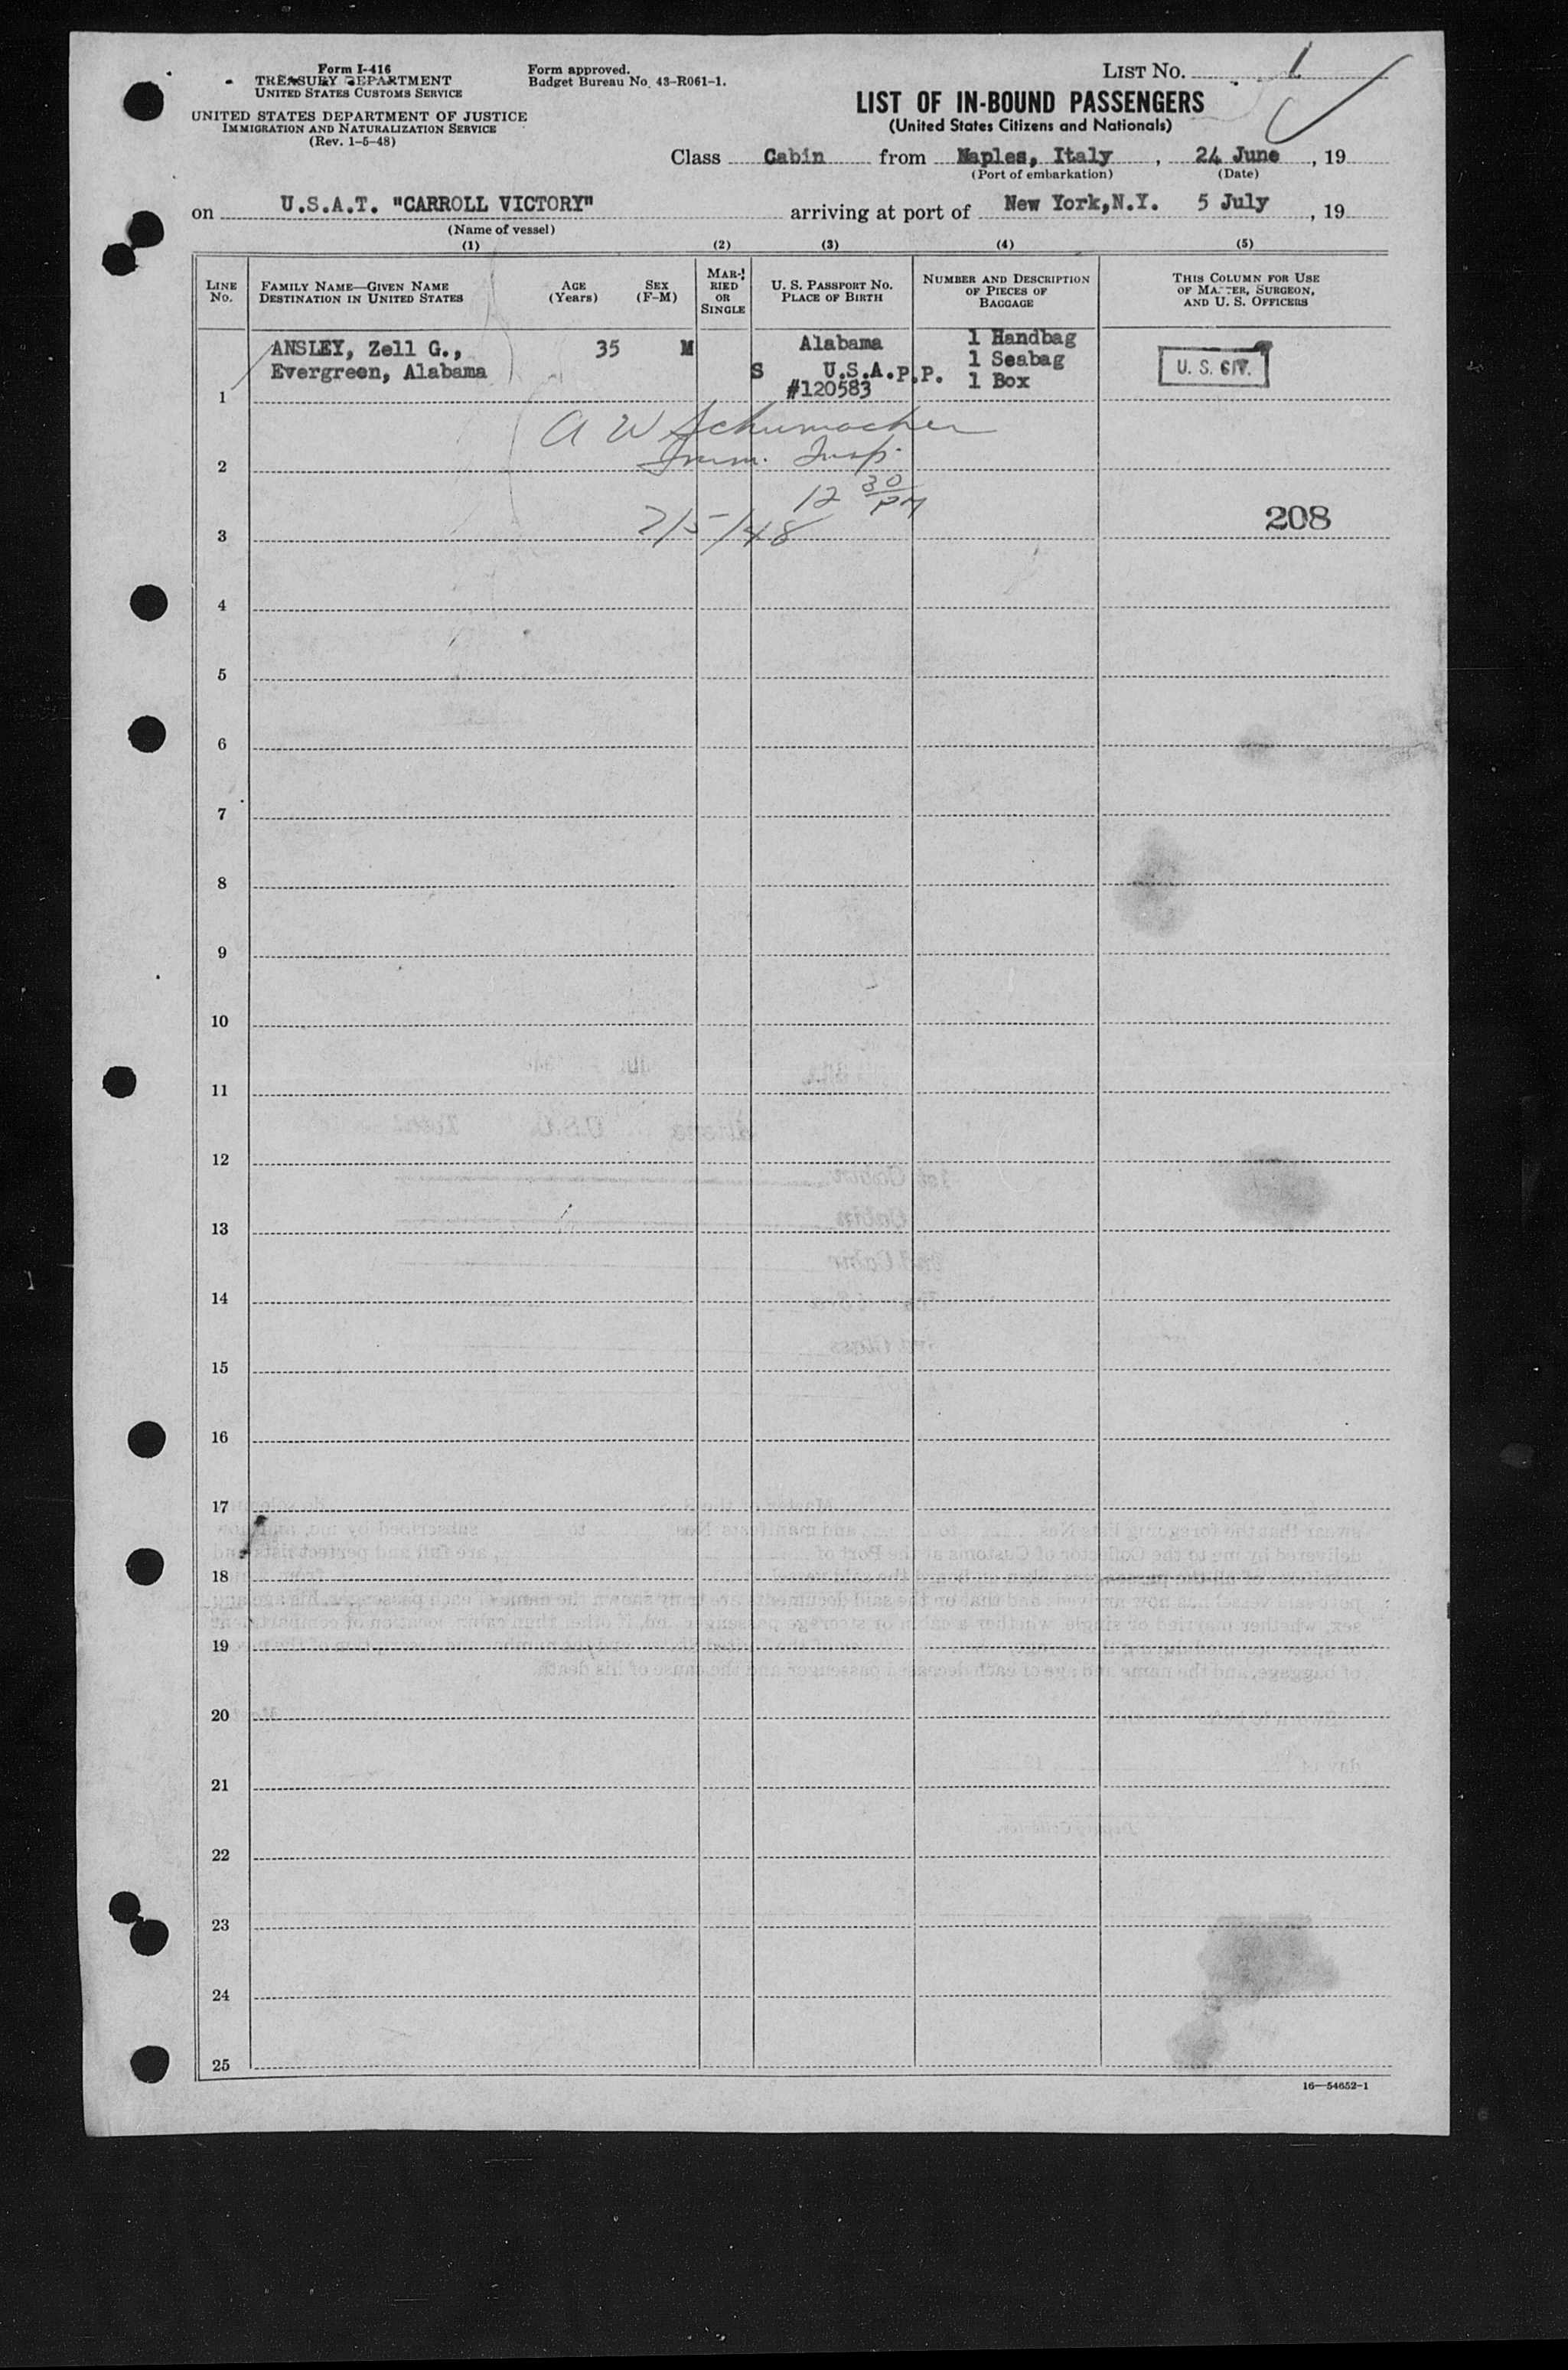 Form I-416
TREASURY DEPARTMENT
UNITED STATES CUSTOMS SERVICE
UNITED STATES DEPARTMENT OF JUSTICE
IMMIGRATION AND NATURALIZATION SERVICE
(Rev. 1-5-48)
Form approved.
Budget Bureau No. 43-R061-1.
LIST NO. 1
LIST OF IN-BOUND PASSENGERS
(United States Citizens and Nationals)
Class Cabin from Naples, Italy, 24 June, 19
(Port of embarkation) (Date)
on U.S.A.T. "CARROLL VICTORY" arriving at port of New York, N.Y. 5 July, 19
(Name of vessel)
(1) (2) (3) (4) (5)
LINE NO.
FAMILY NAME—GIVEN NAME
DESTINATION IN UNITED STATES
AGE
(Years)
SEX
(F-M)
MAR-
RIED
OR
SINGLE
U. S. PASSPORT NO.
PLACE OF BIRTH
NUMBER AND DESCRIPTION
OF PIECES OF
BAGGAGE
THIS COLUMN FOR USE
OF MASTER, SURGEON,
AND U. S. OFFICERS
ANSLEY, Zell G., 35 M Alabama 1 Handbag
Evergreen, Alabama S U.S.A.P.P. 1 Seabag
#120583 1 Box
U. S. CIT.
1
A W Schumacher
2
Imm. Insp.
12 30 PM
7/5/48
208
3
4
5
6
7
8
9
10
11
12
13
14
15
16
17
18
19
20
21
22
23
24
25
16—54652-1